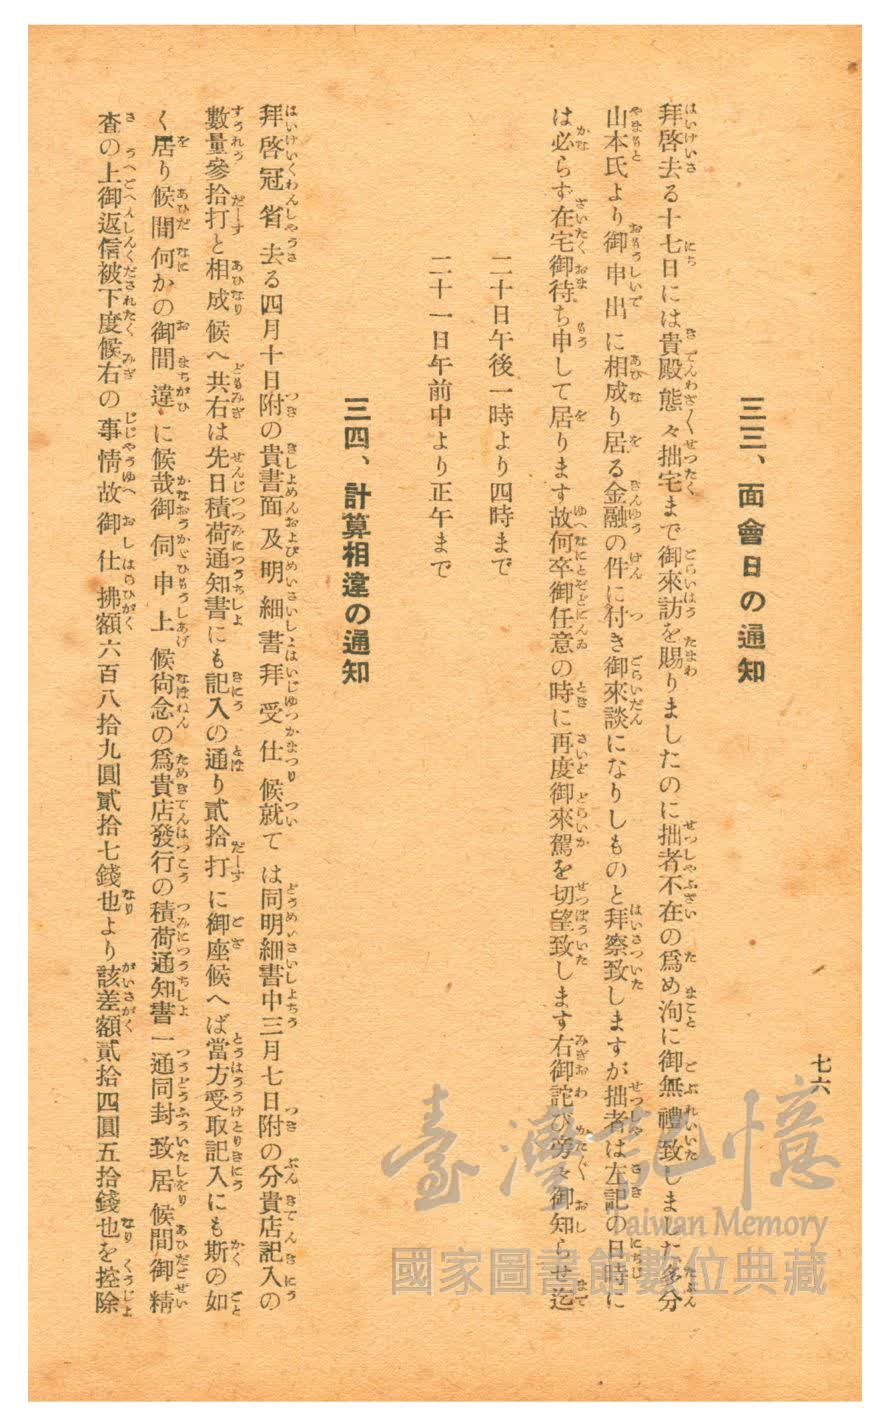 七六
三三、面會日の通知
拜啓去る十七日には貴殿態々拙宅まで御來訪を賜りましたのに拙者不在の爲め洵に御無禮致しました多分
山本氏より御申出に相成り居る金融の件に付き御來談になりしものと拜察致しますが拙者は左記の日時に
は必らず在宅御待ち申して居ります故何卒御任意の時に再度御來駕を切望致します右御詫び旁々御知らせ迄
二十日午後一時より四時まで
二十一日午前中より正午まで
三四、計算相違の通知
拜啓冠省去る四月十日附の貴書面及明細書拜受仕候就ては同明細書中三月七日附の分貴店記入の
數量參拾打と相成候へ共右は先日積荷通知書にも記入の通り貳拾打に御座候へば當方受取記入にも斯の如
く居り候間何かの御間違に候哉御伺申上候尙念の爲貴店發行の積荷通知書一通同封致居候間御精
査の上御返信被下度候右の事情故御仕拂額六百八拾九圓貳拾七錢也より該差額貳拾四圓五拾錢也を控除
臺灣記憶
Taiwan Memory
國家圖書館數位典藏